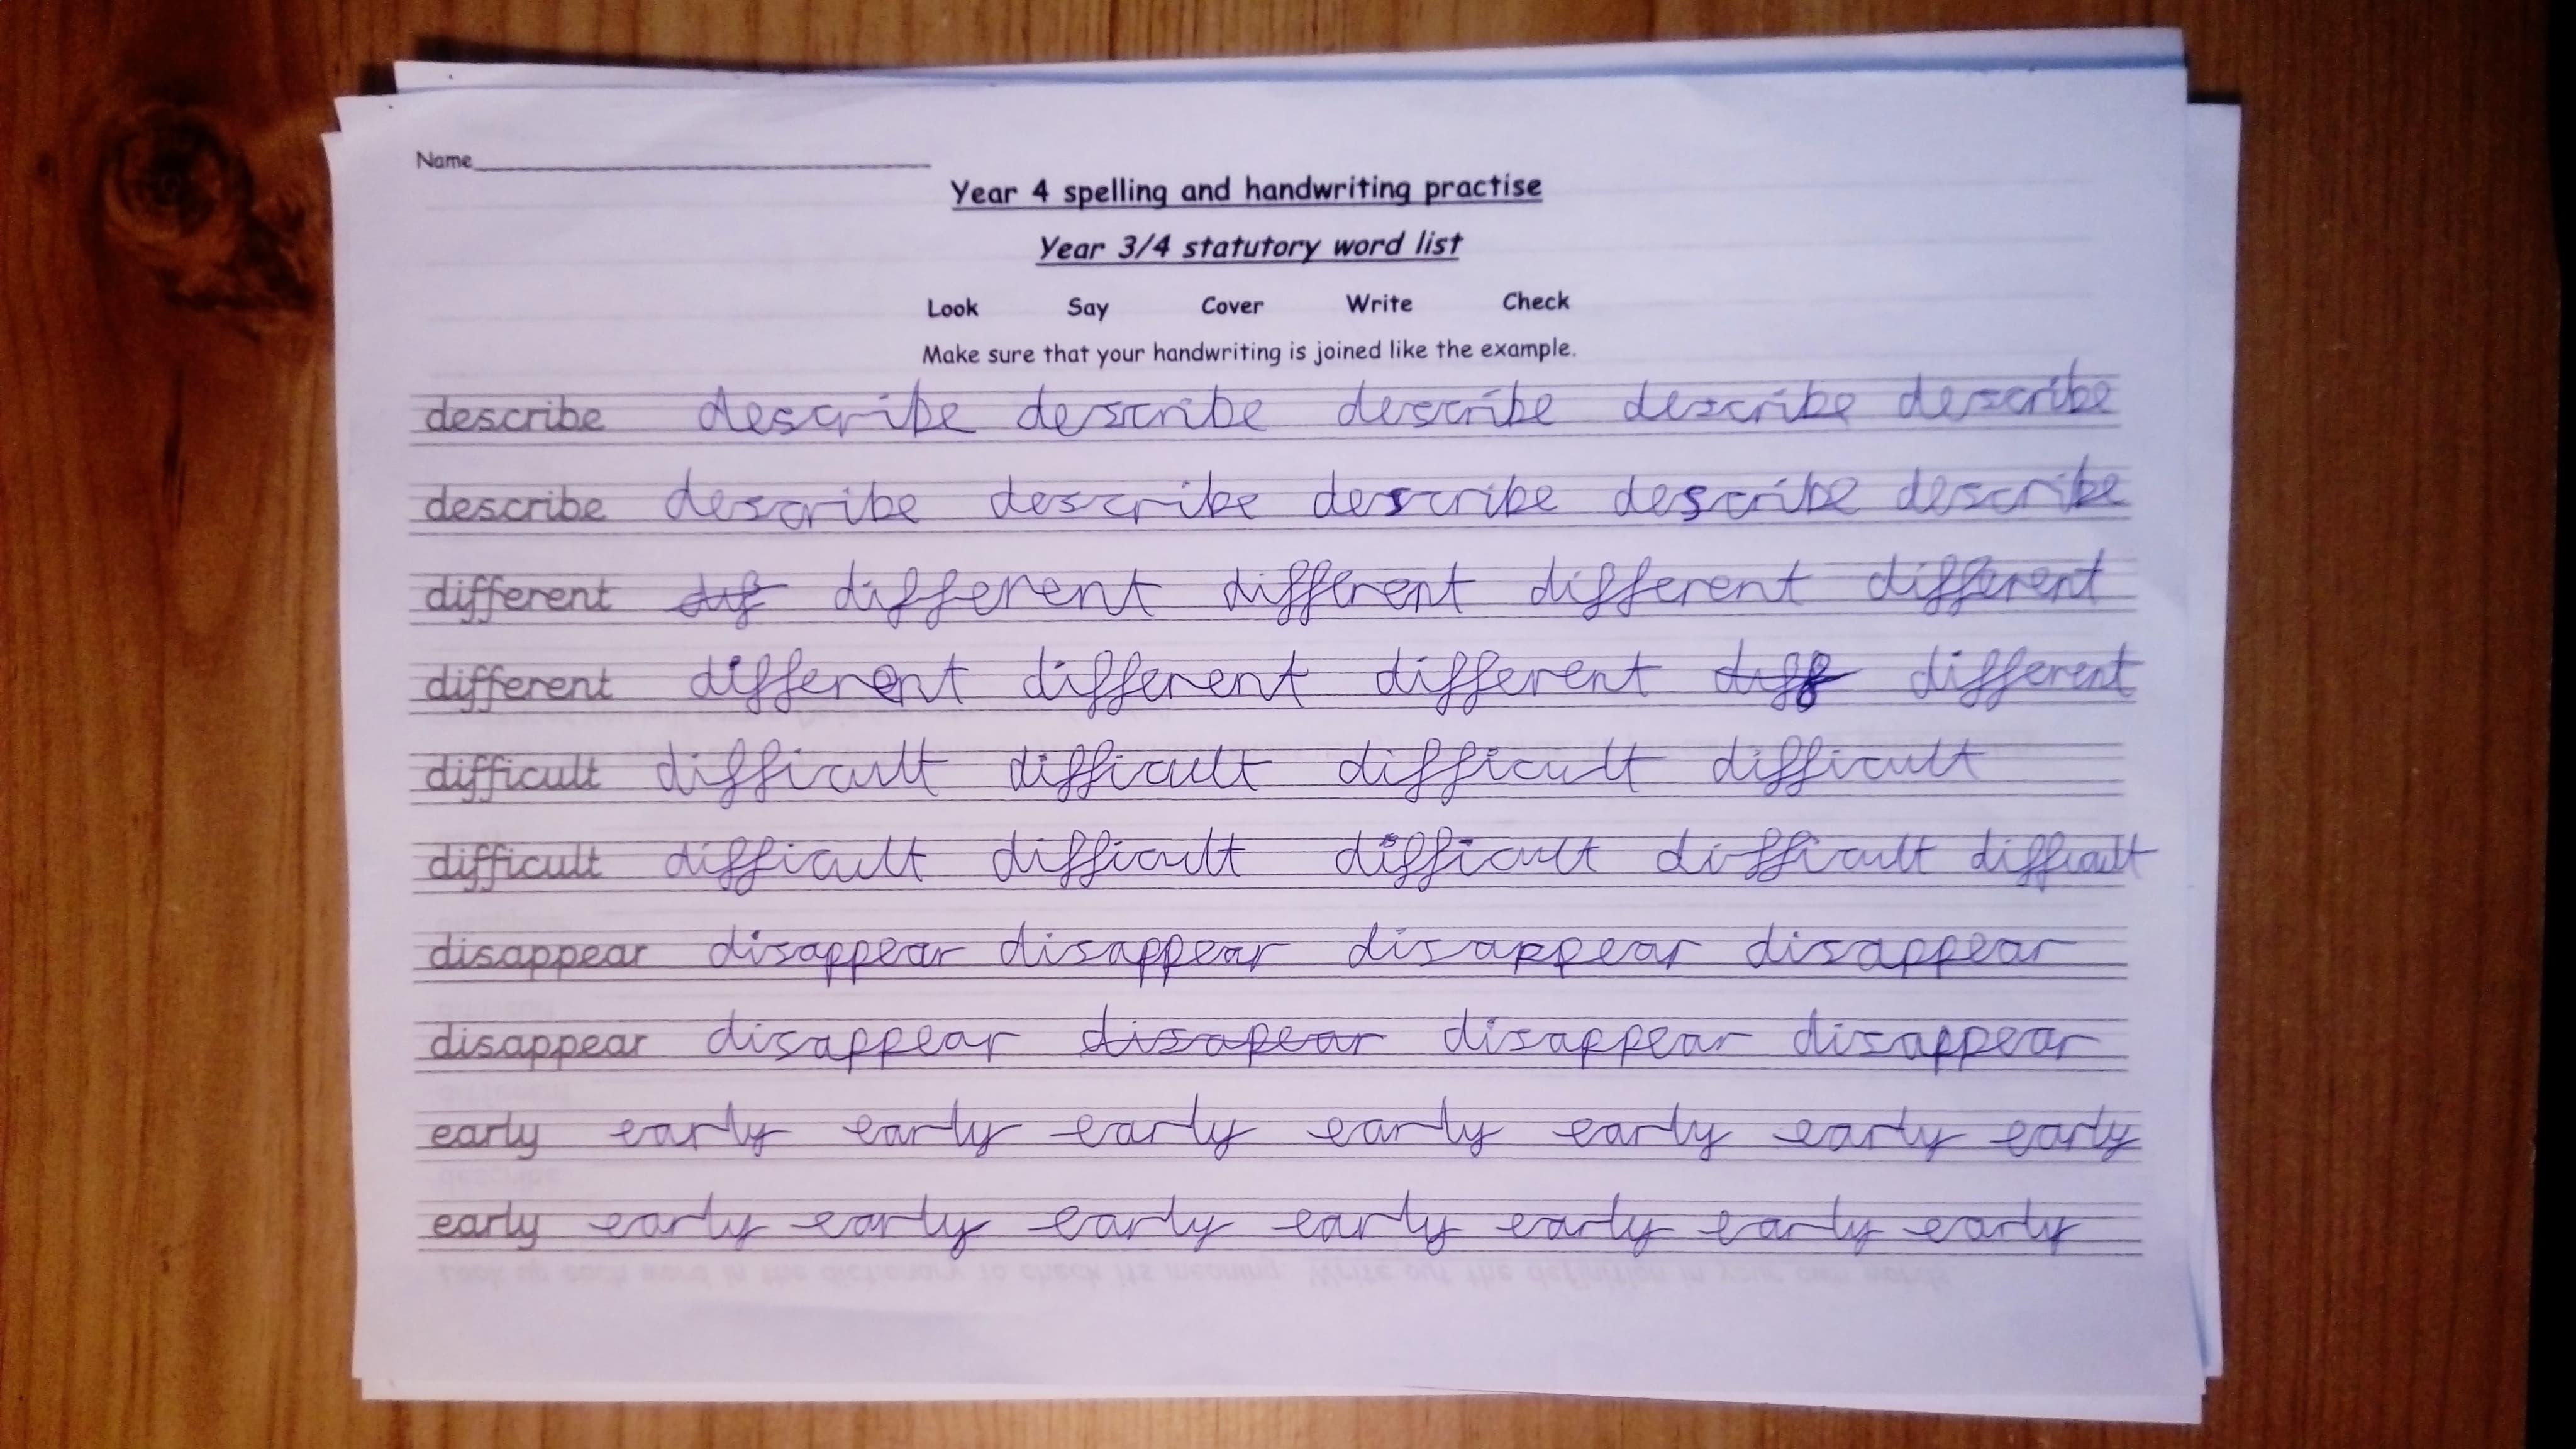 Name
Year 4 spelling and handwriting practise
Year 3/4 statutory word list
Look Say Cover Write Check
Make sure that your handwriting is joined like the example.
describe describe describe describe describe describe
describe describe describe describe describe describe
different dif different different different different
different different different different diff different
difficult difficult difficult difficult difficult
difficult difficult difficult difficult difficult difficult
disappear disappear disappear disappear disappear
disappear disappear disapear disappear disappear
early early early early early early early early
early early early early early early early early
Look up each word in the dictionary to check its meaning. Write out the definition in your own words